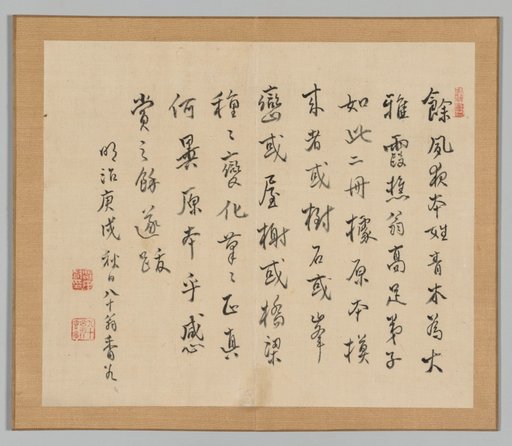 餘夙夜本姓青木為大
雅霞樵翁高足弟子
如此二冊據原本摸
来者或樹石或峯
巒或屋榭或橋梁
種〻變化筆〻正真
何異原本乎感
賞之餘遂跋
明治庚戌秋日八十翁